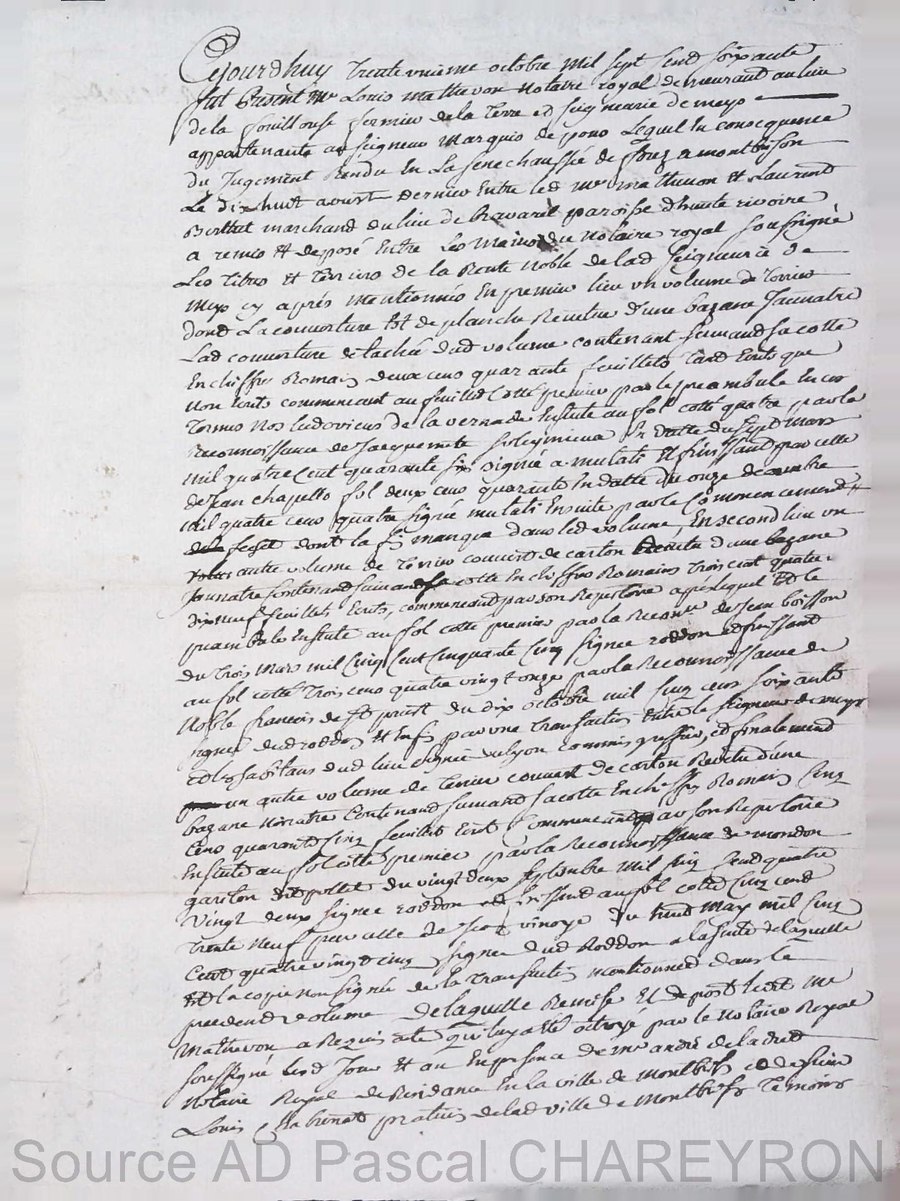 Cejourdhuy trente unieme octobre mil sept cend soixante
fut present Me Louis mathevon notaire royal demeurand au lieu
de la fouillouse fermier de la terre et seigneurie de meys
appartenante au seigneur marquis de pons Lequel En consequence
du Jugement Rendu En La senechaussée de forez a montbrison
Le dix huit aoust dernier Entre led Me mathevon et Laurend
Berthet marchand du lieu de paroisse d'haute rivoire
a remis et deposé Entre Les mains du notaire royal soussigné
Les titres et terriers de la Rente noble de lad seigneurie de
meys cy après mentionnés En premier lieu un volume de terrier
dond La couverture Est de planche Revetue d'une bazane Jaunatre
Lad couverture detachée dud volume contenant suivand sa cotte
En chiffres Romais deux cens quarante feuillets tand Ecrits que
non Ecrits commencant au feuillet cotté premier par le preambule En ces
termes Nos Ludovicus de la verna de Ensuite au fol cotté quatre par la
Reconnoissance de Jacquemete soleymieux En datte du sept mars
mil quatre cent quarante six signée a mutati Et finissand par celle
de Jean chapelle fol deux cens quarante En datte du onze decembre
mil quatre cens quatre signée mutati Ensuite par le commencement
dont la fin manque dans led volume, En second lieu un
autre volume de terrier couvert de carton Revetu d'une bazane
Jaunatre contenand suivand sa cotte En chiffres Romains trois cent quatre
dix neuf feuillets Ecrits, commencant par son Repertoire après lequel Est le
preambule Ensuite au fol cotté premier par la Reconce de Jean boisson
du trois mars mil cinq cent cinquante cinq signée roddon et finissant
au fol cotté trois cens quatre vingt onze par la Reconnoissance de
Noble françois de st priest du dix octobre mil cinq cens soixante
signée dud roddon Et Enfin par une transaction Entre le seigneur de meys
et les habitans dud lieu signée commis greffier, et finalement
un autre volume de terrier couvert de carton Revetu d'une
bazane noiratre contenand suivand sa cotte En chiffres Romais cinq
cens quarante cinq feuillets Ecrits commencand par son Repertoire
Ensuite au fol cotté premier par la Reconnoissance de mondon
gariton dit pollet du vingt deux septembre mil cinq cend quatre
vingt deux signée roddon et finissand au fol cotté cinq cend
trente neuf par celle de du huit may mil cinq
cent quatre vingt cinq signée dud Roddon a la suite de laquelle
est la copie non signée de la transaction mentionnée dans le
precedend volume De laquelle Remise Et depost led Me
Mathevon a Requis acte qui luy a été octroyé par le notaire Royal
soussigné Lesd Jour Et an En presence de Me andré de la
Notaire Royal de Residance En la ville de Montbrison et de sieur
Louis Chabrerat praticien de lad ville de Montbrison temoins
Source AD Pascal CHAREYRON